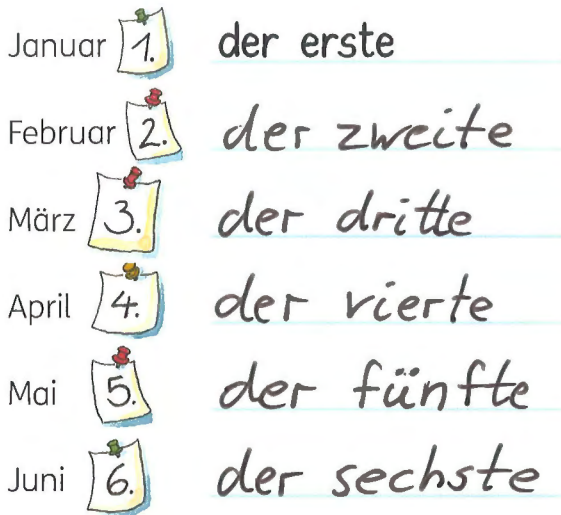 Januar 1. der erste
Februar 2. der zweite
März 3. der dritte
April 4. der vierte
Mai 5. der fünfte
Juni 6. der sechste